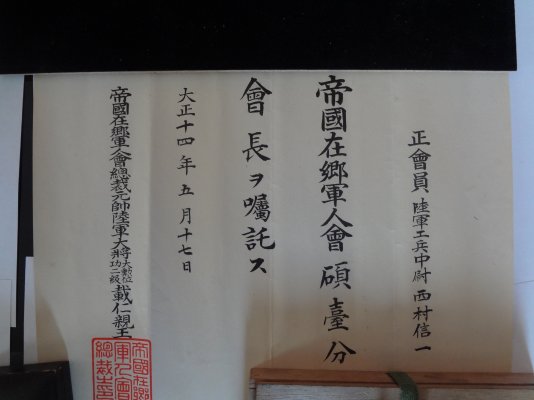 正會員 陸軍工兵中尉 西村信一
帝國在鄉軍人會 碩臺分
會長ヲ囑託ス
大正十四年五月十七日
帝國在鄉軍人會總裁元帥陸軍大將大勲位功二級載仁親王
帝國在鄉
軍人會
總裁之印